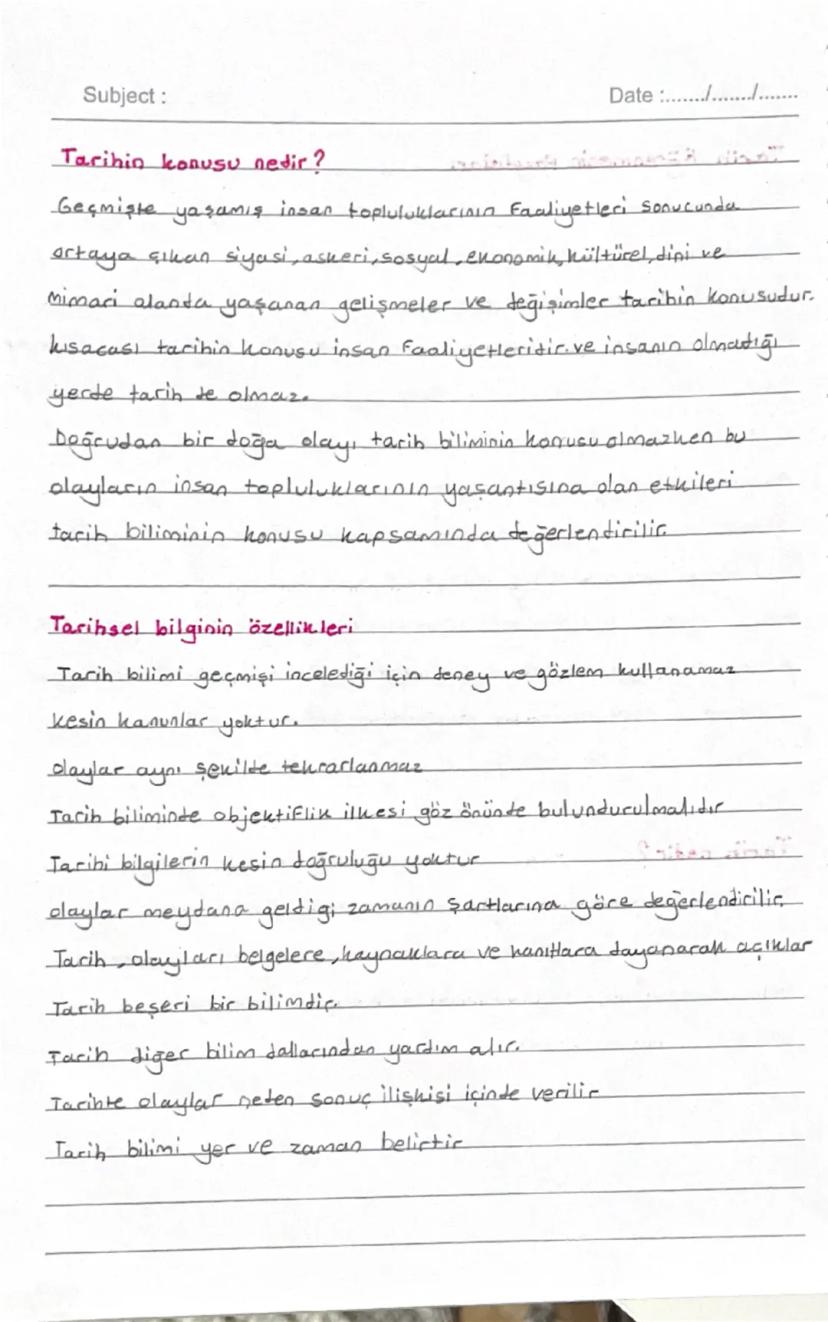 Subject :
Date :......./......./.......
Tarihin konusu nedir?
Geçmişte yaşamış insan topluluklarının Faaliyetleri sonucunda
ortaya çıkan siyasi, askeri, sosyal, ekonomik, kültürel, dini ve
mimari alanda yaşanan gelişmeler ve değişimler tarihin konusudur.
kısacası tarihin konusu insan Faaliyetleridir. ve insanın olmadığı
yerde tarih de olmaz.
Doğrudan bir doğa olayı tarih biliminin konusu olmazken bu
olayların insan topluluklarının yaşantısına olan etkileri
tarih biliminin konusu kapsamında değerlendirilir.
Tarihsel bilginin özellikleri
Tarih bilimi geçmişi incelediği için deney ve gözlem kullanamaz
kesin kanunlar yoktur.
olaylar aynı şekilde tekrarlanmaz
Tarih biliminde objektiflik ilkesi göz önünde bulundurulmalıdır
Tarihi bilgilerin kesin doğruluğu yoktur
olaylar meydana geldigi zamanın şartlarına göre değerlendirilir.
Tarih, olayları belgelere, kaynaklara ve kanıtlara dayanarak açıklar
Tarih beşeri bir bilimdir.
Tarih diğer bilim dallarından yardım alır.
Tarihte olaylar neden sonuç ilişkisi içinde verilir
Tarih bilimi yer ve zaman belirtir